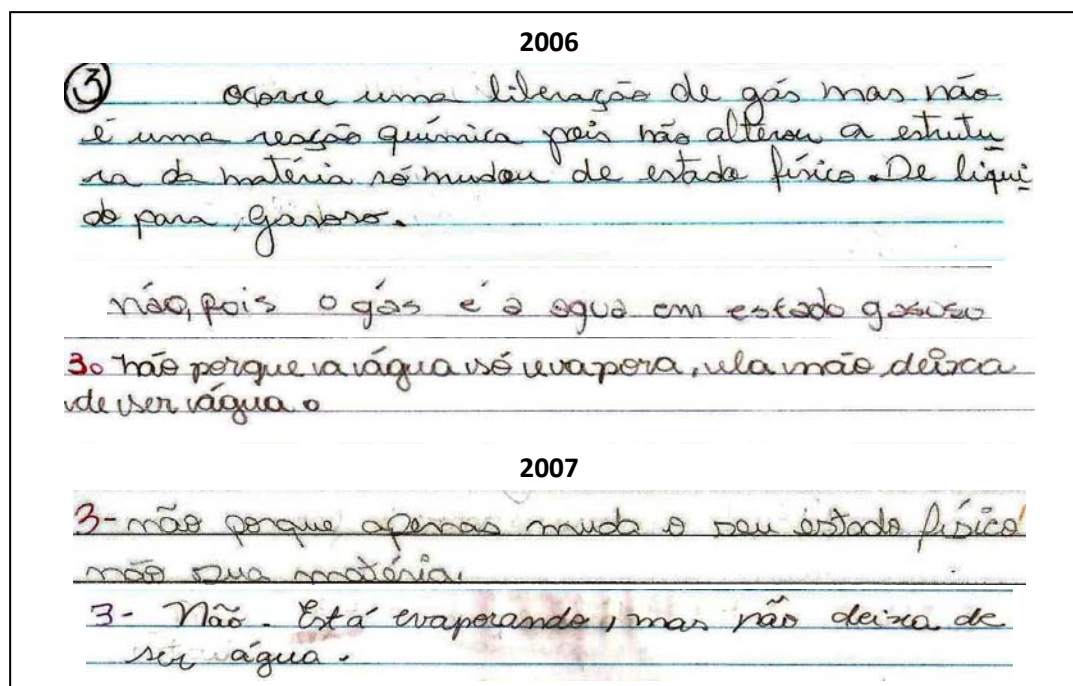 2006
3 ocorre uma liberação de gás mas não
é uma reação química pois não alterou a estrutu
ra da matéria só mudou de estado físico. De líqui
do para, Gasoso.
não, pois o gás é a agua em estado gasoso
3. não porque a água só evapora, ela não deixa
de ser água.
2007
3- não porque apenas muda o seu estado físico
não sua matéria.
3- Não. Está evaporando, mas não deixa de
ser água.